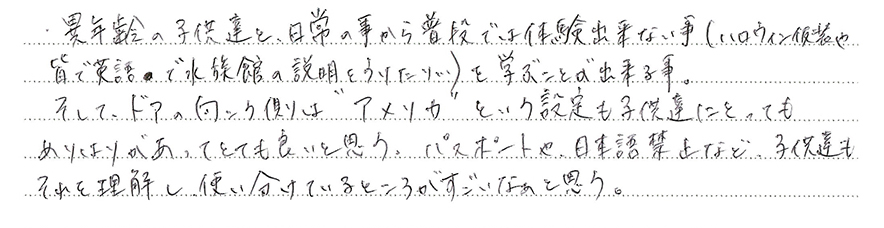 ・異年齢の子供達と、日常の事から普段では体験出来ない事(ハロウィン仮装や
皆で英語で水族館の説明をうけたり…)を学ぶことが出来る事。
そして、ドアの向こう側は"アメリカ"という設定も子供達にとっても
めりはりがあってとても良いと思う。パスポートや、日本語禁止など、子供達も
それを理解し、使い分けているところがすごいなぁと思う。